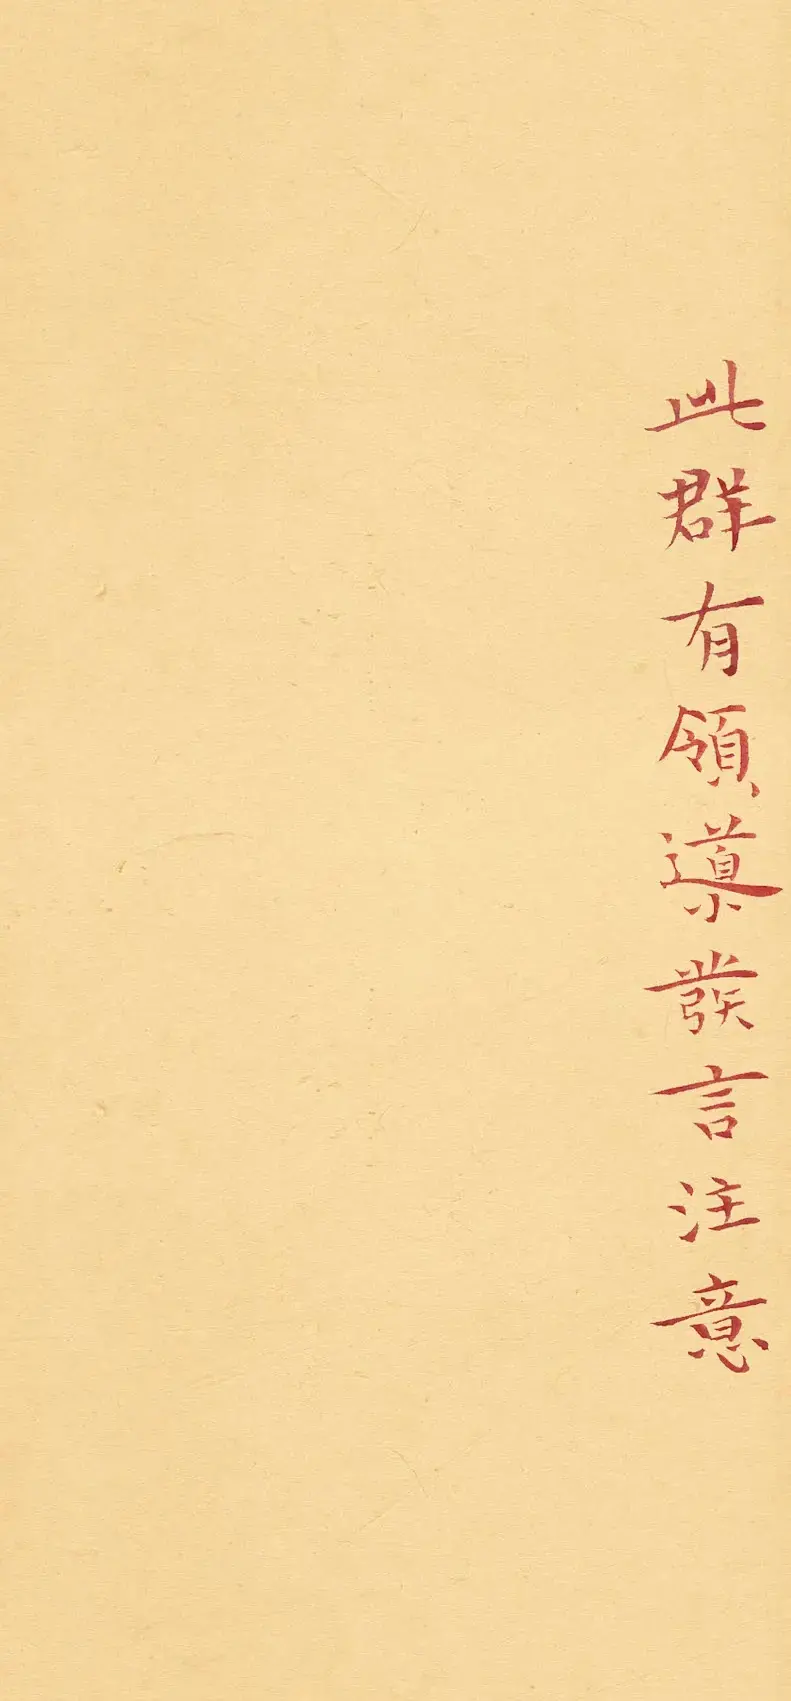 此群有領導發言注意